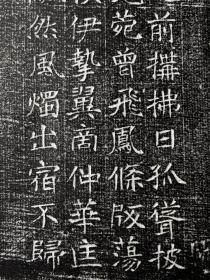 前拂日孤聳披
苑曾飛鳳條版蕩
伊摯翼商仲華匡
然風燭出宿不歸